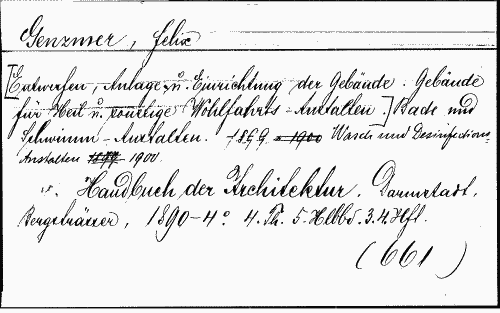 Genzmer, Felix
[Entwerfen, Anlage u. Einrichtung der Gebäude. Gebäude
für Heil u. sonstige Wohlfahrts-Anstalten.] Bade und
Schwimm-Anstalten. 1899. - 1900 Wasch und Desinfections-
Anstalten 1899 1900.
v. Handbuch der Architektur. Darmstadt,
Bergsträsser, 1890-4°. 4. Th. 5. Hlbbd. 3. 4. Hft.
(661)